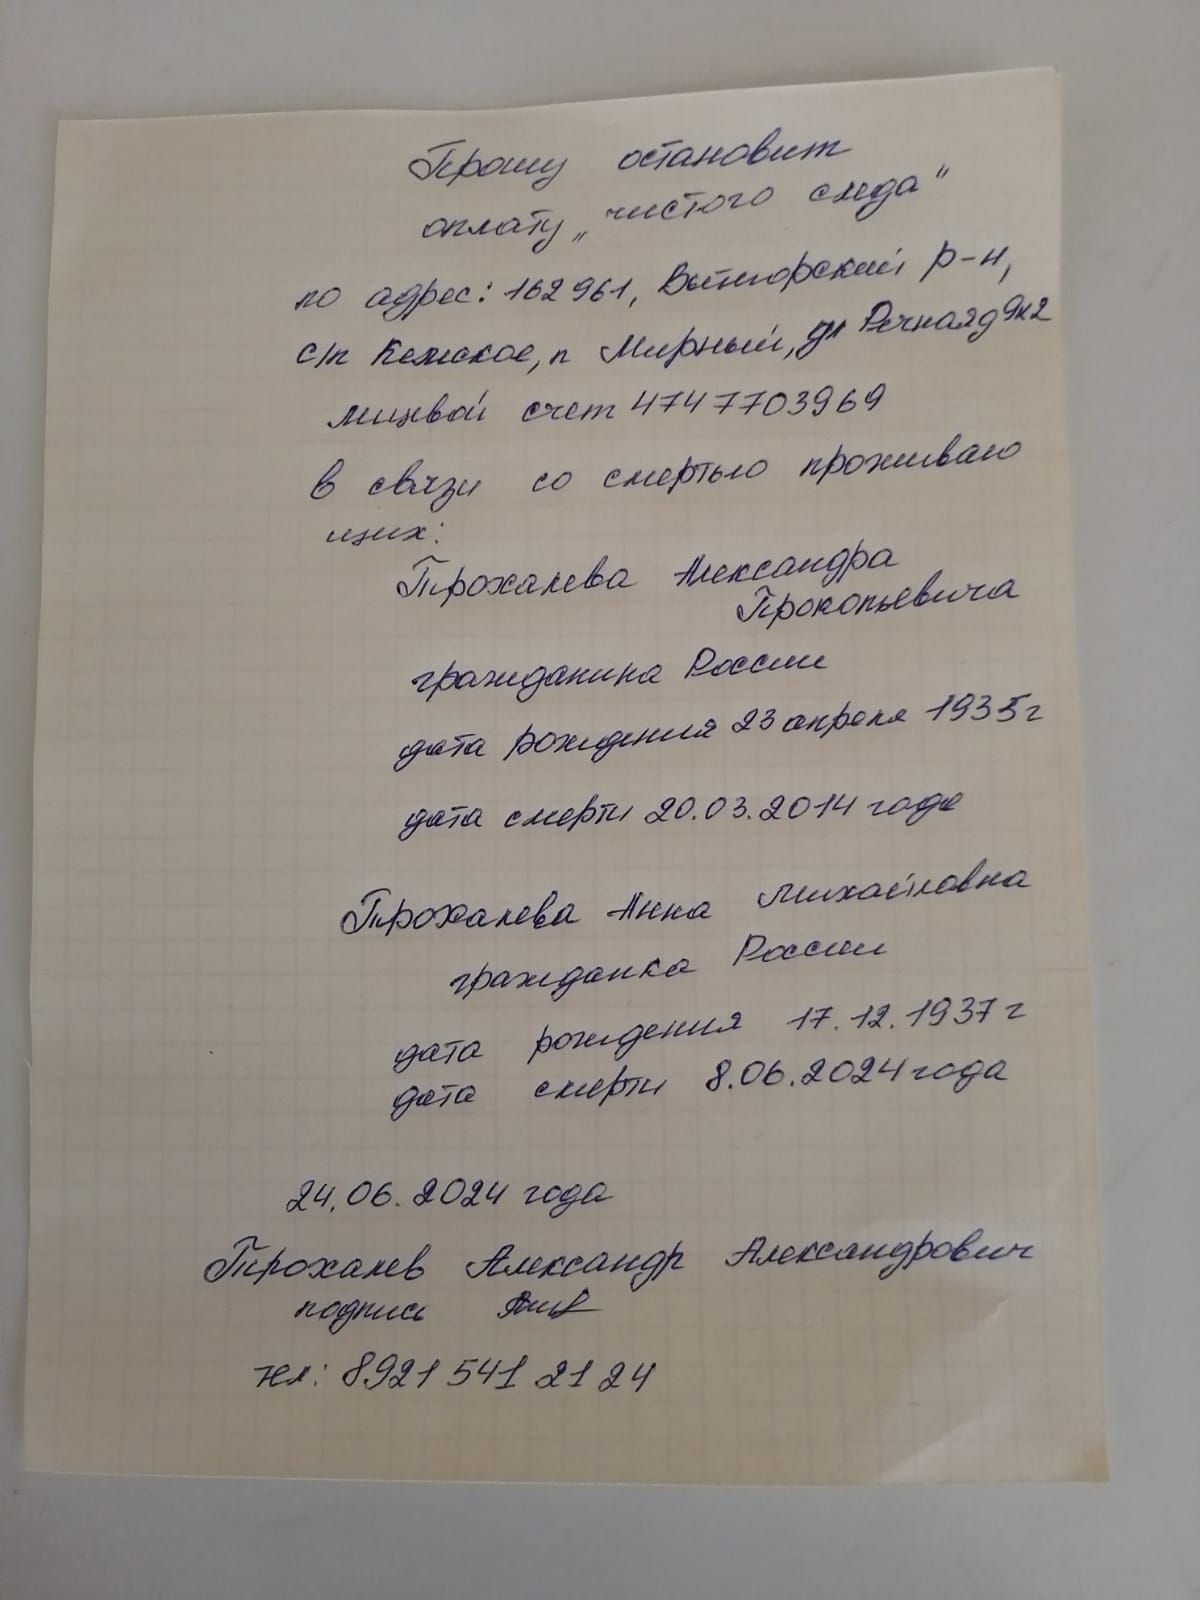 Прошу остановит
оплату „чистого следа"
по адрес: 162961, Вытегорский р-н,
с/п Кемское, п Мирный, ул Речная д 9 к 2
лицевой счет 4747703969
в связи со смертью проживаю
щих:
Прохалева Александра
Прокопьевича
гражданина России
дата рождения 23 апреля 1935 г
дата смерти 20.03.2014 года
Прохалева Анна Михайловна
гражданка России
дата рождения 17.12.1937 г
дата смерти 8.06.2024 года
24.06.2024 года
Прохалев Александр Александрович
подпись
тел: 8921 541 21 24